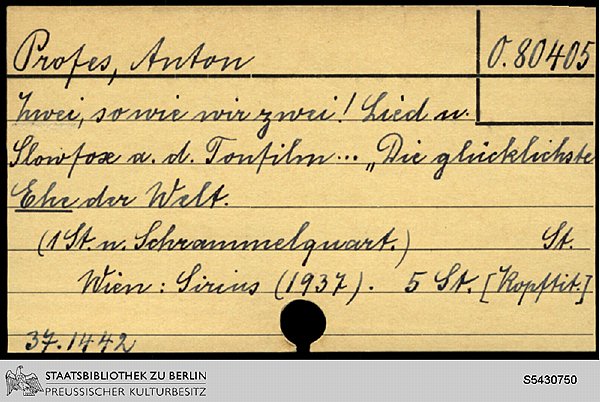 Profes, Anton
O. 80405
Zwei, so wie wir zwei! Lied u.
Slowfox a. d. Tonfilm... „Die glücklichste
Ehe der Welt.
(1 St. u. Schrammelquart.) St.
Wien: Sirius (1937). 5 St. [Kopftit.]
37.1442
STAATSBIBLIOTHEK ZU BERLIN
PREUSSISCHER KULTURBESITZ
S5430750